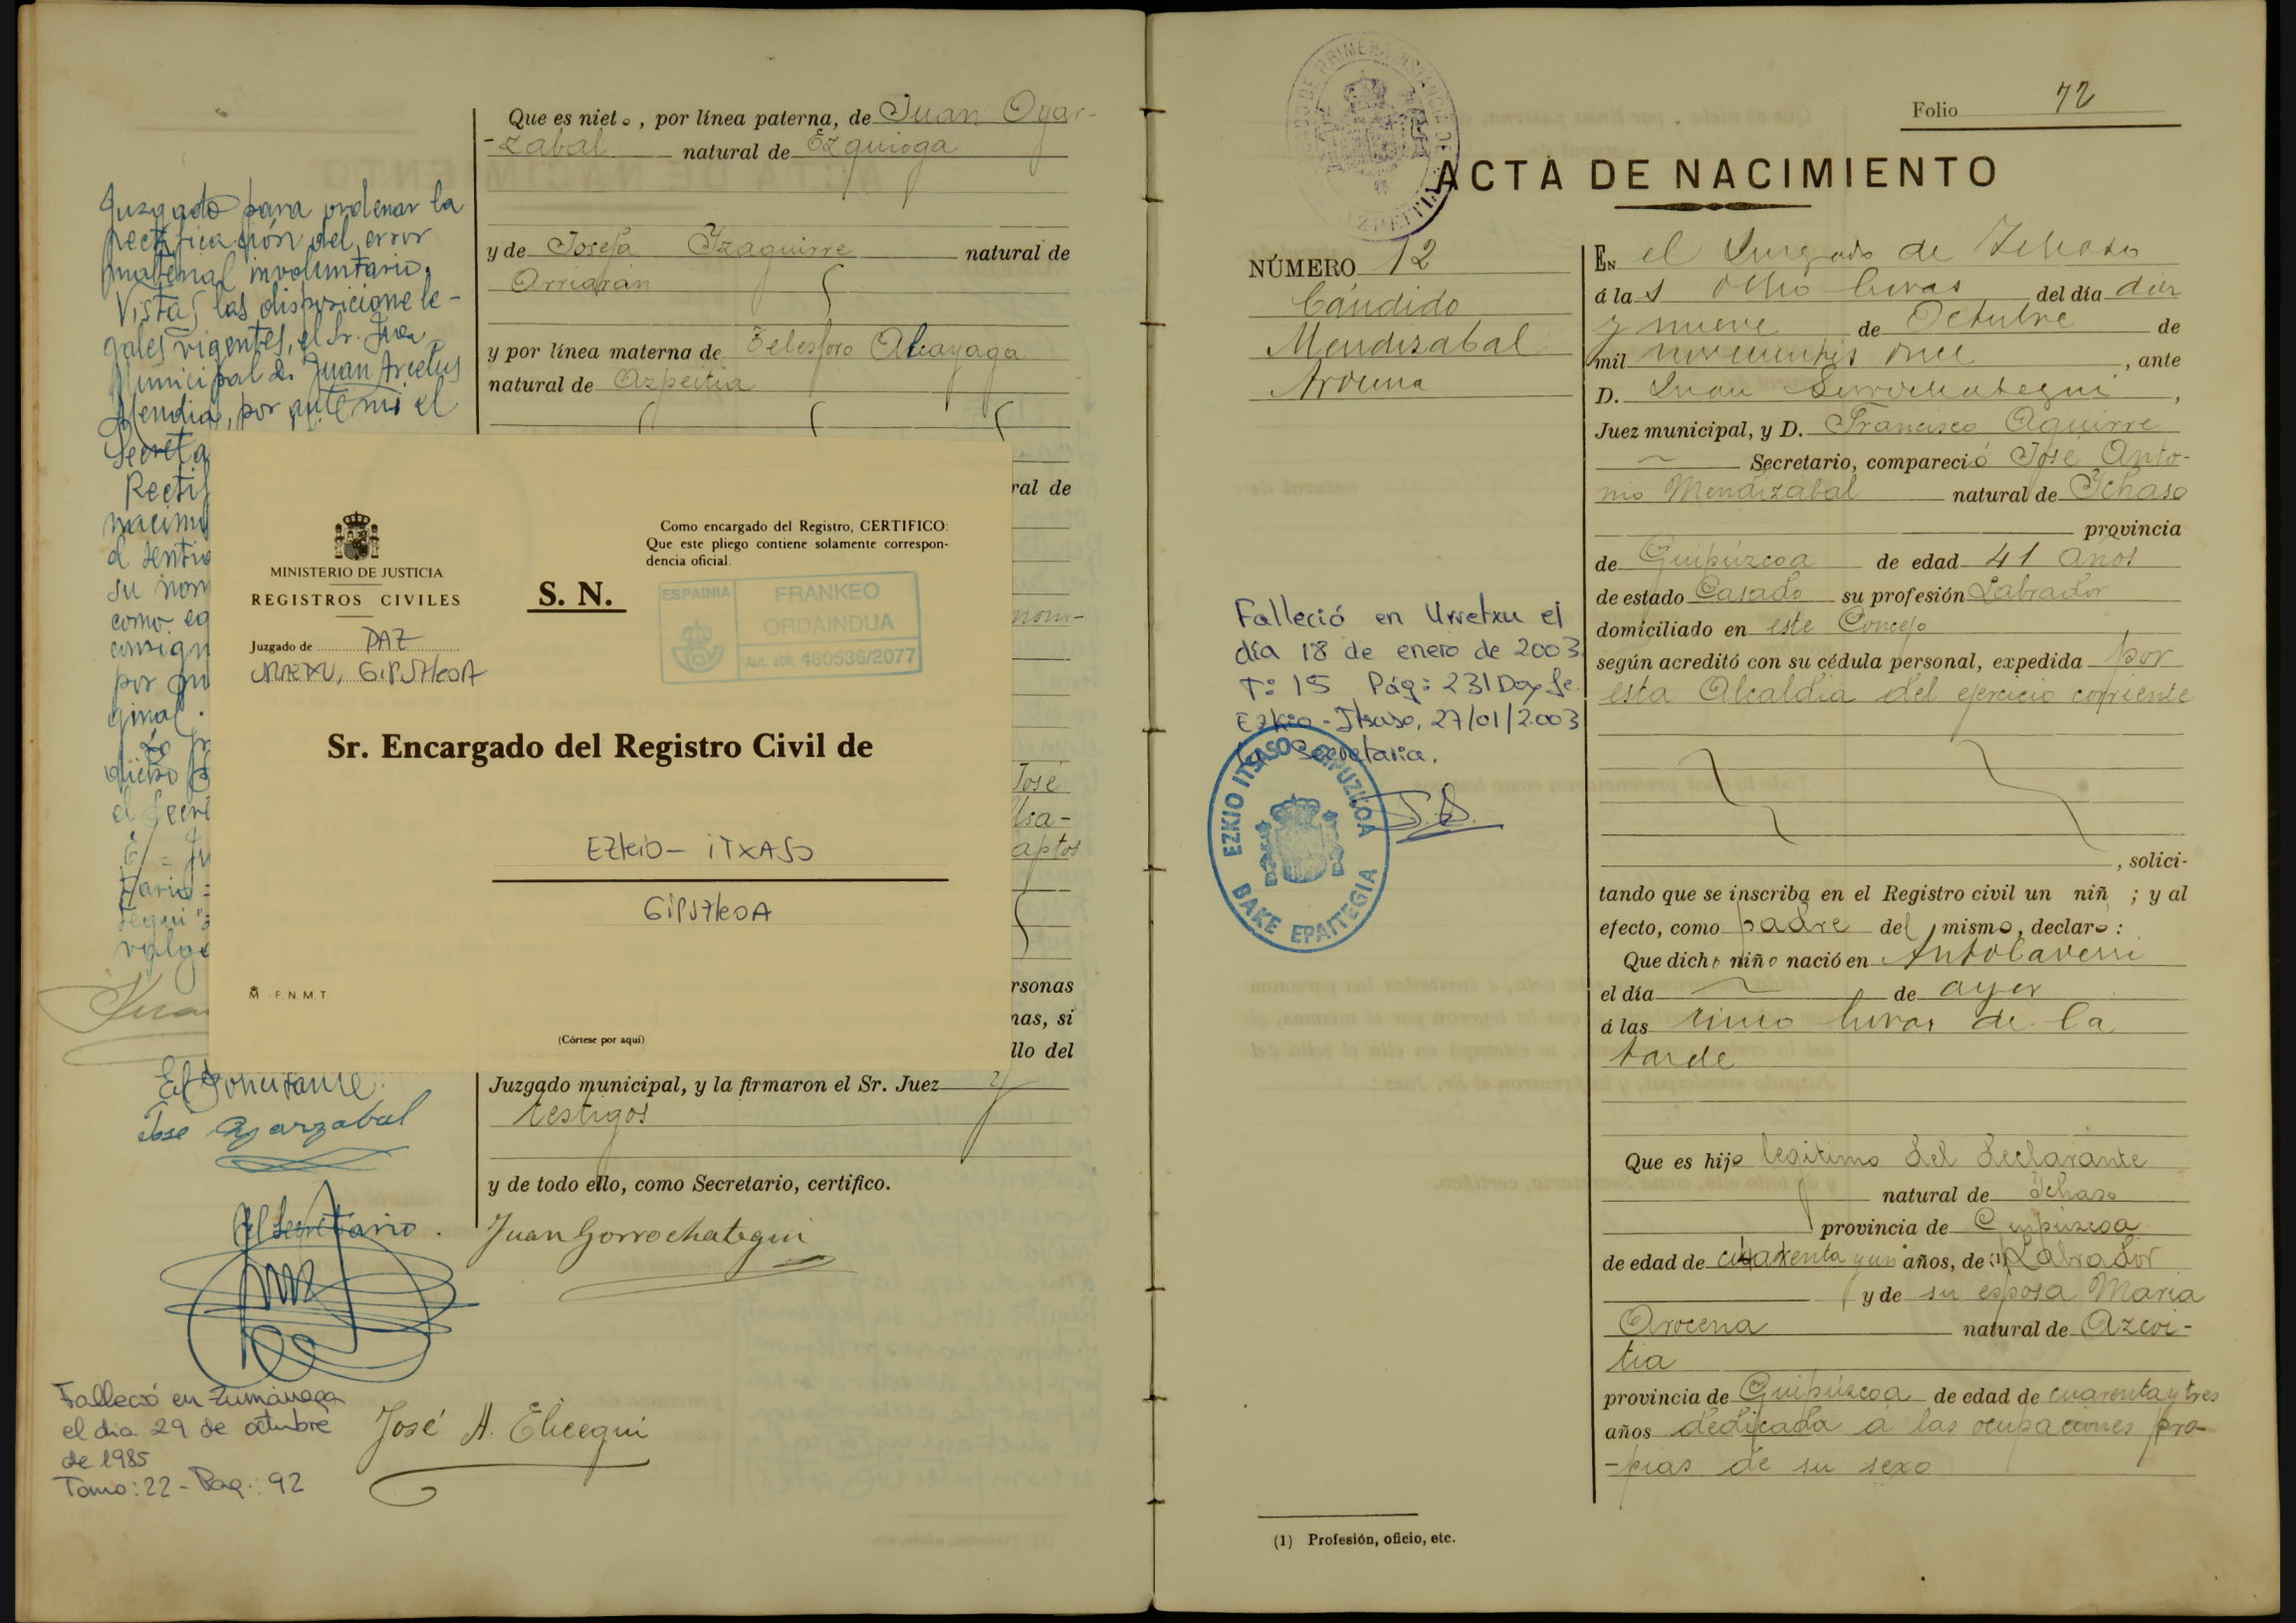 Que es nieto, por línea paterna, de Juan Oyar-
-zabal natural de Ezquioga
y de Josefa Yzaguirre natural de
Arriarán
y por línea materna de Telesforo Alcayaga
natural de Azpeitia
Juzgado para ordenar la
rectificación del error
material involuntario.
Vistas las disposicione le-
gales vigentes, el Sr. Juez
Municipal D. Juan Arcelus
Mendia, por ante mi el
Secreta
Rectif
nacimi
el sentid
su nom
como eq
consign
por
ginal.
el Secre
Tario =
tegui"
valga
ral de
nom-
José
Usa-
aptos
rsonas
nas, si
llo del
MINISTERIO DE JUSTICIA
REGISTROS CIVILES
Juzgado de PAZ
URRETXU, GIPUZKOA
S. N.
Como encargado del Registro, CERTIFICO:
Que este pliego contiene solamente correspon-
dencia oficial.
ESPAINIA
FRANKEO
ORDAINDUA
Aut. zbk. 480536/2077
Sr. Encargado del Registro Civil de
EZKIO - ITXASO
GIPUZKOA
F.N.M.T.
(Córtese por aquí)
Juzgado municipal, y la firmaron el Sr. Juez y
testigos
y de todo ello, como Secretario, certifico.
Juan Gorrochategui
José A. Elicegui
Jose Oyarzabal
El Secretario.
Falleció en Zumárraga
el dia 29 de octubre
de 1985
Tomo: 22 - Pag.: 92
JUZGADO DE PRIMERA INSTANCIA DE
AZPEITIA
Folio 72
ACTA DE NACIMIENTO
NÚMERO 12
Cándido
Mendizabal
Arocena
Falleció en Urretxu el
día 18 de enero de 2003
T: 15 Pág: 231 Doy fe.
Ezkio-Itsaso, 27/01/2003
La Secretaria.
EZKIO ITSASO GIPUZKOA
BAKE EPAITEGIA
En el Juzgado de Ichaso
á las ocho horas del día diez
y nueve de Octubre de
mil novecientos once, ante
D. Juan Gorrochategui,
Juez municipal, y D. Francisco Aguirre
Secretario, compareció José Anto-
nio Mendizabal natural de Ichaso
provincia
de Guipúzcoa de edad 41 años
de estado Casado su profesión Labrador
domiciliado en este Concejo
según acreditó con su cédula personal, expedida por
esta Alcaldia del ejercicio corriente
, solici-
tando que se inscriba en el Registro civil un niñ ; y al
efecto, como padre del mismo, declaró:
Que dicho niño nació en
el día de ayer
á las cinco horas de la
tarde
Que es hijo legitimo del declarante
natural de Ichaso
provincia de Guipúzcoa
de edad de cuarenta y un años, de (1) Labrador
y de su esposa Maria
Arocena natural de Azcoi-
tia
provincia de Guipúzcoa de edad de cuarenta y tres
años dedicada á las ocupaciones pro-
-pias de su sexo
(1) Profesión, oficio, etc.